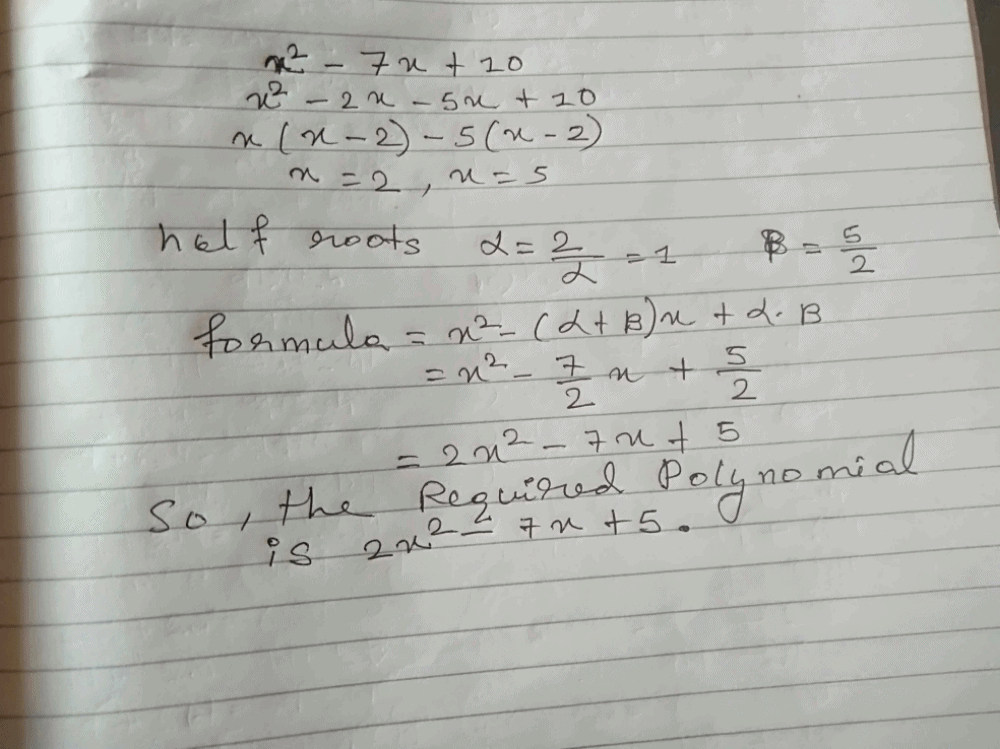 x² - 7x + 10
x² - 2x - 5x + 10
x (x - 2) - 5 (x - 2)
x = 2 , x = 5
half roots α = 2/2 = 1 β = 5/2
formula = x² - (α + β)x + α . β
= x² - 7/2 x + 5/2
= 2x² - 7x + 5
So, the Required Polynomial
is 2x² - 7x + 5.